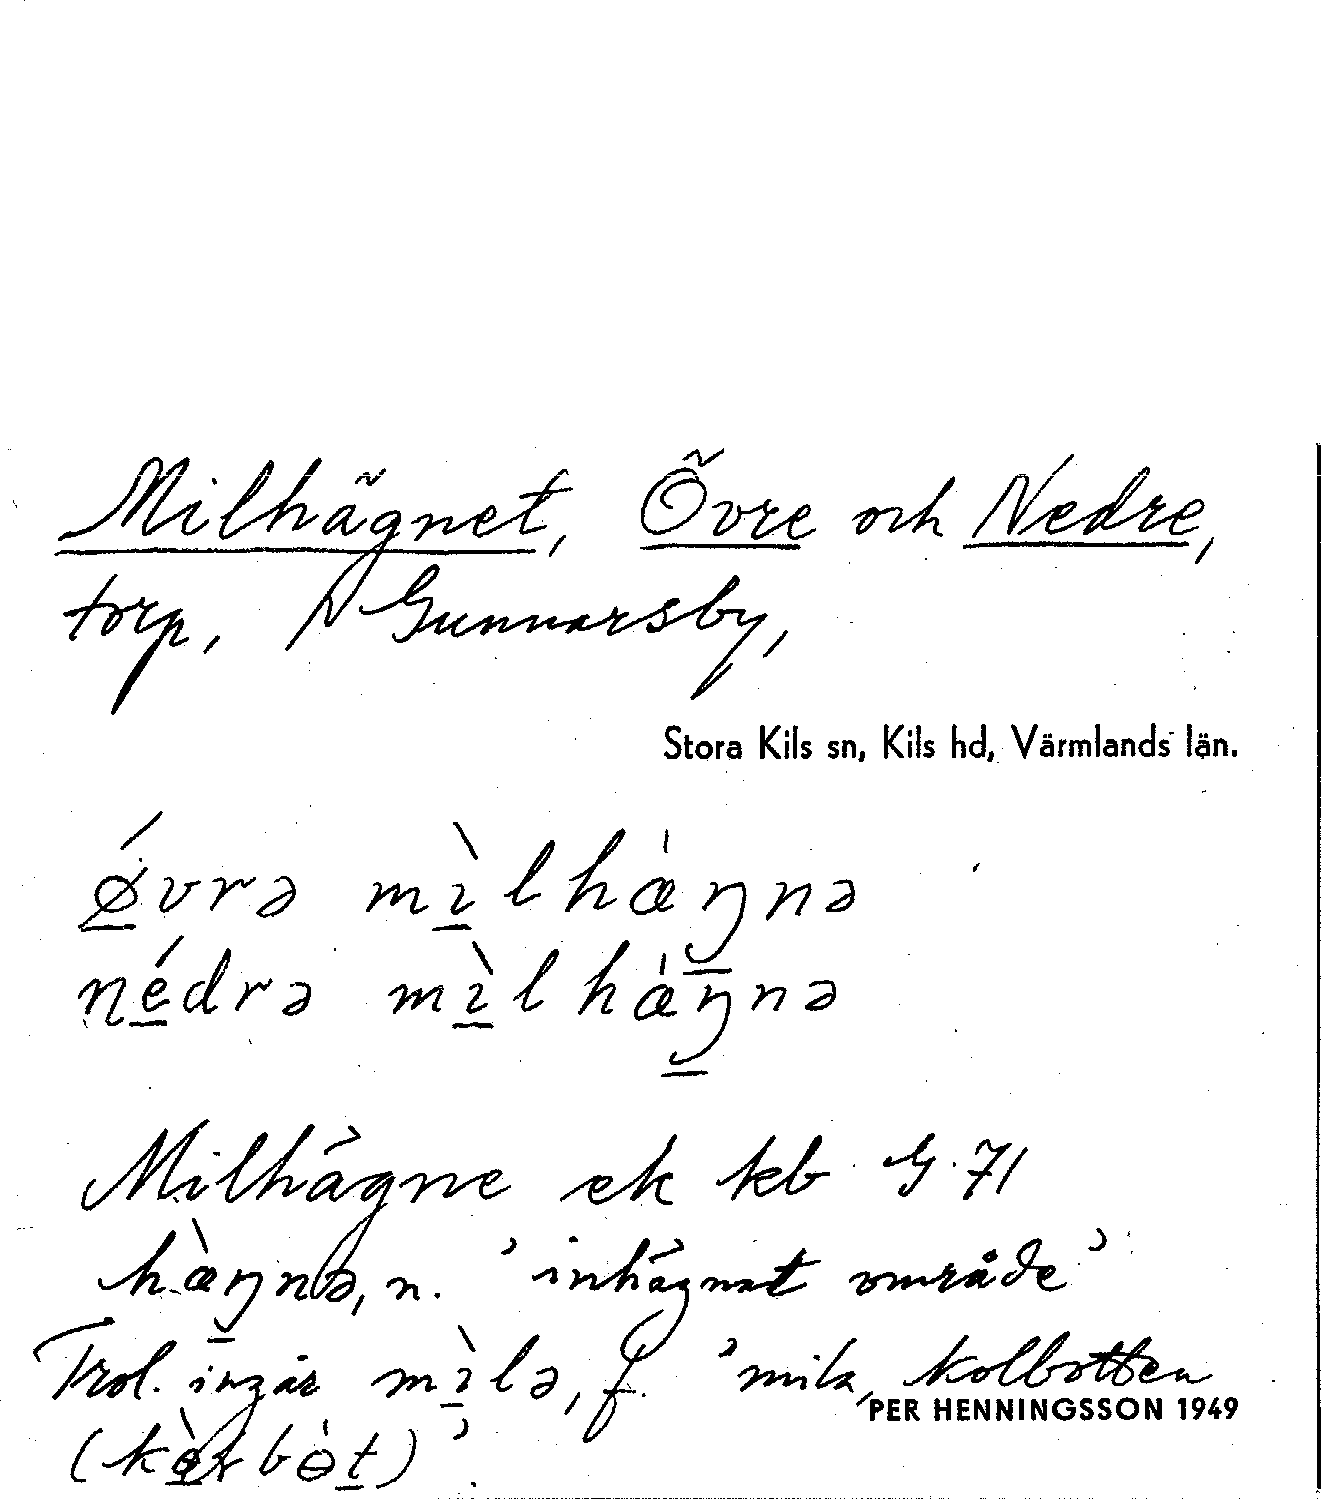 Milhägnet, Övre och Nedre,
torp, p Gunnarsby,
Stora Kils sn, Kils hd, Värmlands län.
ǿvrə mìlhæ̀ŋnə
nédrə mìlhæ̀ŋnə
Milhägne ek kb G 71
hæ̀ŋnə, n. 'inhägnat område'
Trol. ingår mìlə, f. 'mila, kolbotten
PER HENNINGSSON 1949